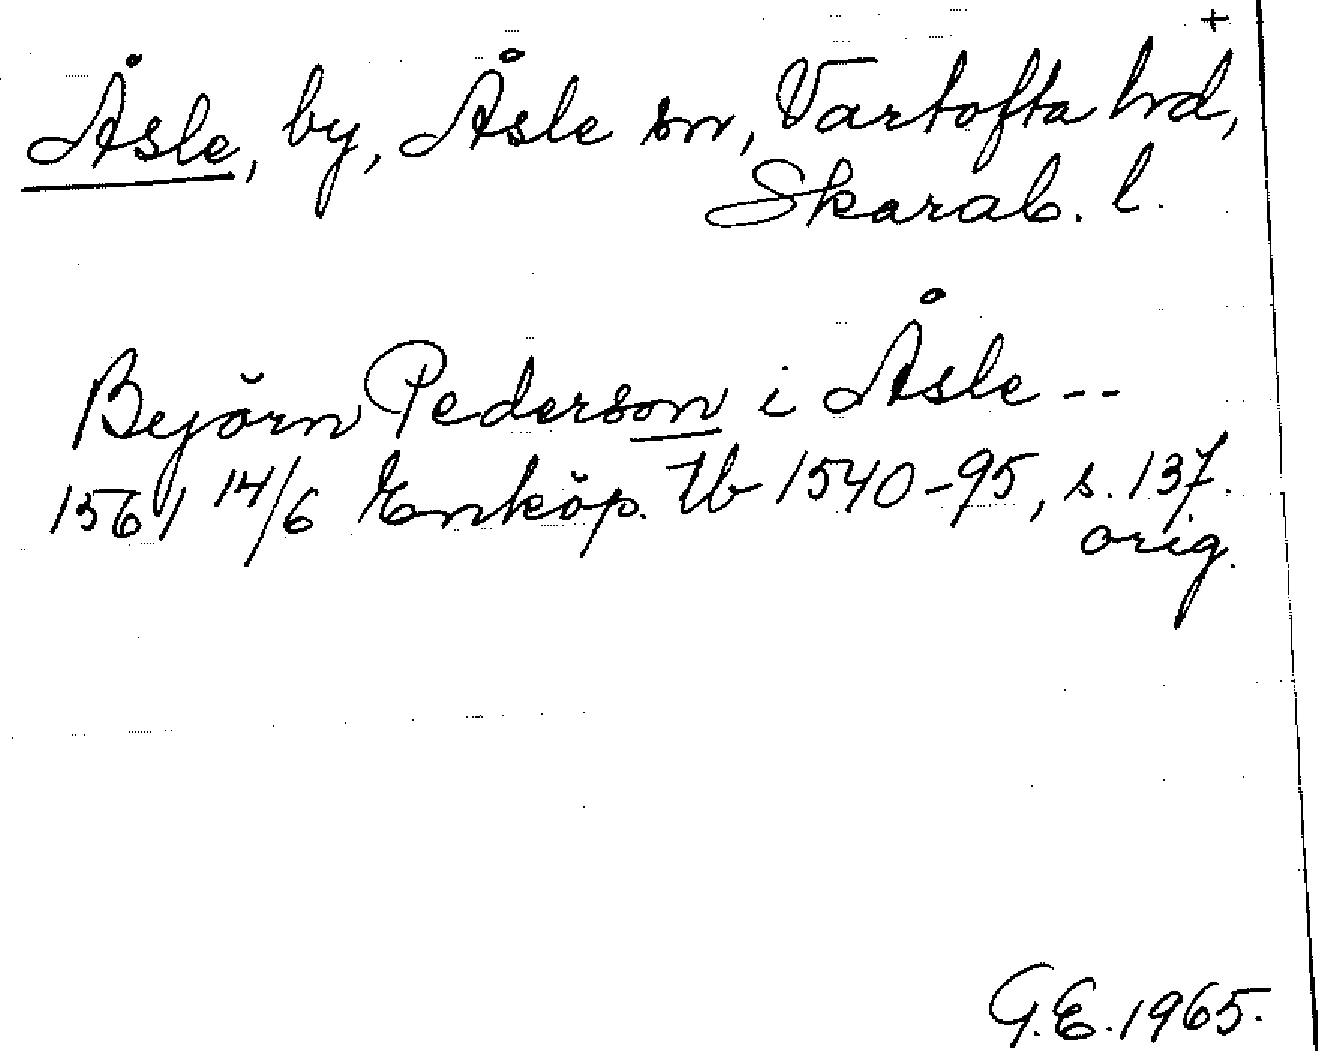 +
Åsle, by, Åsle sn, Vartofta hd,
Skarab. l.
Bejörn Pederson i Åsle --
1561 14/6 Enköp. tb 1540-95, s. 137.
orig.
G.E. 1965.